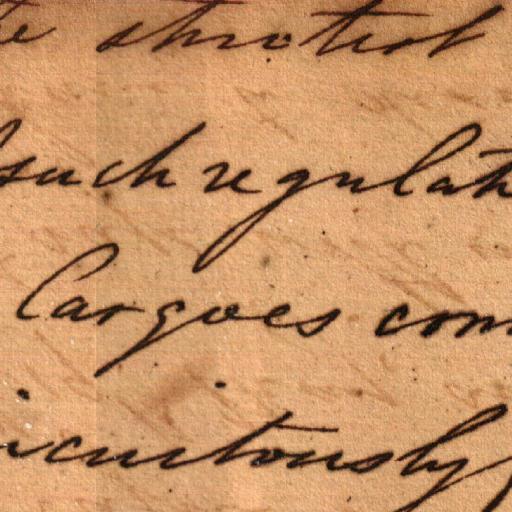 strictest
such regulat
Cargoes com
icuitously